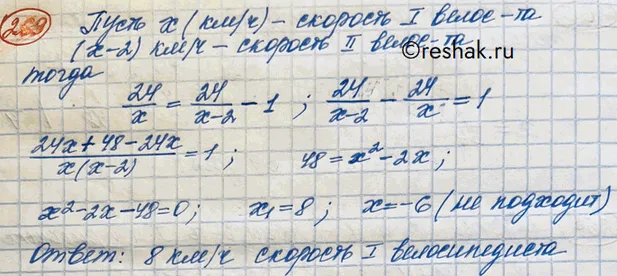 289 Пусть x (км/ч) – скорость I велос-та
(x-2) км/ч – скорость II велос-та
©reshak.ru
тогда
24/x = 24/(x-2) - 1 ; 24/(x-2) - 24/x = 1
(24x + 48 - 24x)/(x(x-2)) = 1 ; 48 = x² - 2x ;
x² - 2x - 48 = 0 ; x₁ = 8 ; x = -6 (не подходит)
Ответ: 8 км/ч скорость I велосипедиста